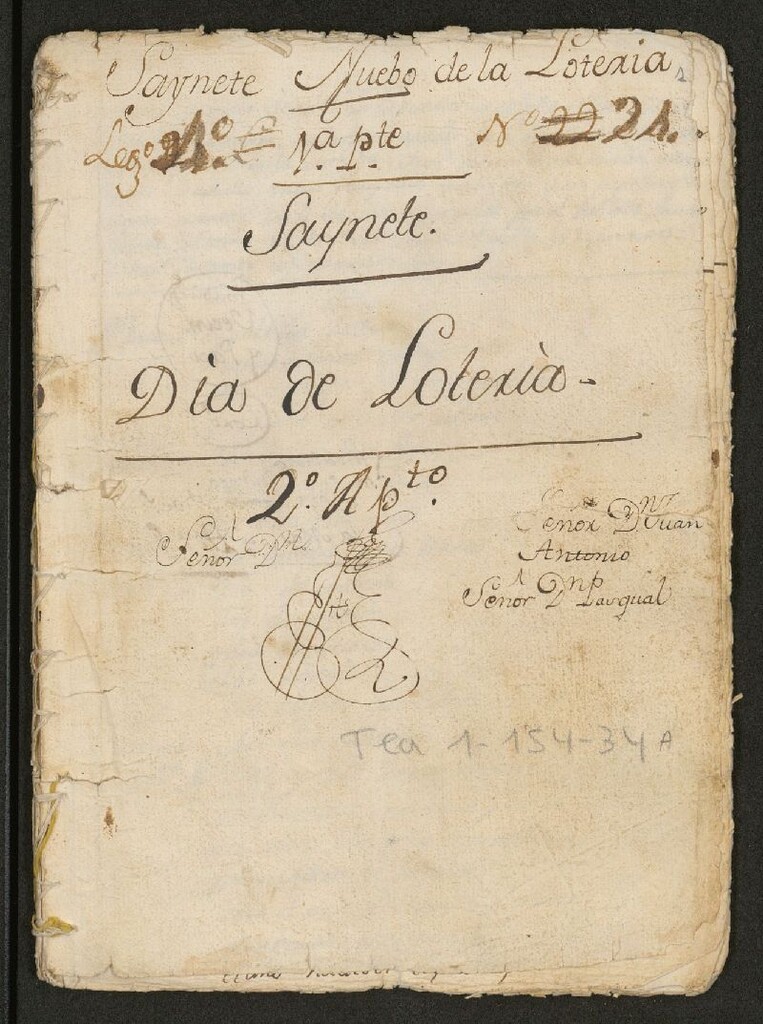 Saynete Nuebo de la Loteria,
Leg.º 21.º 1.ª p.te Nº 22 21.
Saynete.
Dia de Loteria.
2.º Ap.to
Señor Dn. Señor Dn Juan
Antonio
Señor Dn Pasqual
Tea 1-154-34 A